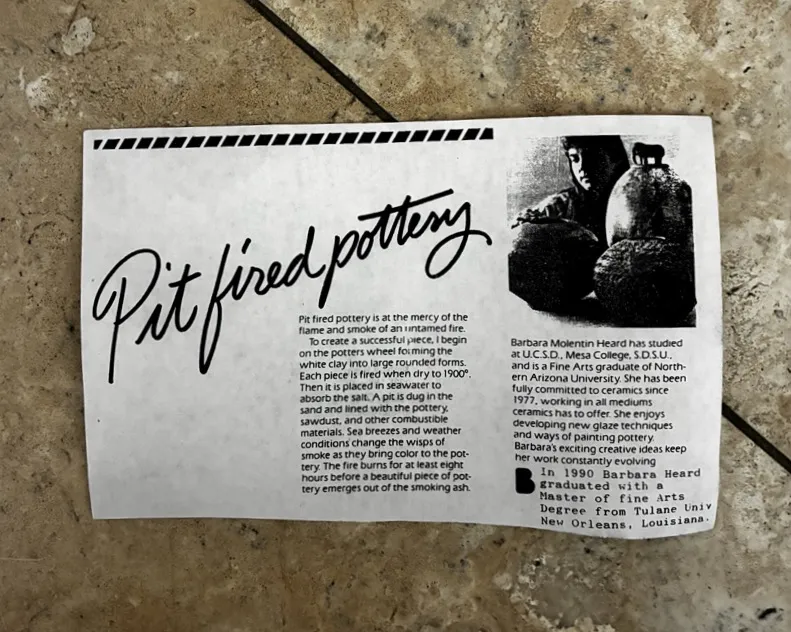 Pit fired pottery
Pit fired pottery is at the mercy of the
flame and smoke of an untamed fire.
To create a successful piece, I begin
on the potters wheel forming the
white clay into large rounded forms.
Each piece is fired when dry to 1900°.
Then it is placed in seawater to
absorb the salt. A pit is dug in the
sand and lined with the pottery,
sawdust, and other combustible
materials. Sea breezes and weather
conditions change the wisps of
smoke as they bring color to the pot-
tery. The fire burns for at least eight
hours before a beautiful piece of pot-
tery emerges out of the smoking ash.
Barbara Molentin Heard has studied
at U.C.S.D., Mesa College, S.D.S.U.,
and is a Fine Arts graduate of North-
ern Arizona University. She has been
fully committed to ceramics since
1977, working in all mediums
ceramics has to offer. She enjoys
developing new glaze techniques
and ways of painting pottery.
Barbara's exciting creative ideas keep
her work constantly evolving
In 1990 Barbara Heard
graduated with a
Master of fine Arts
Degree from Tulane Univ
New Orleans, Louisiana.